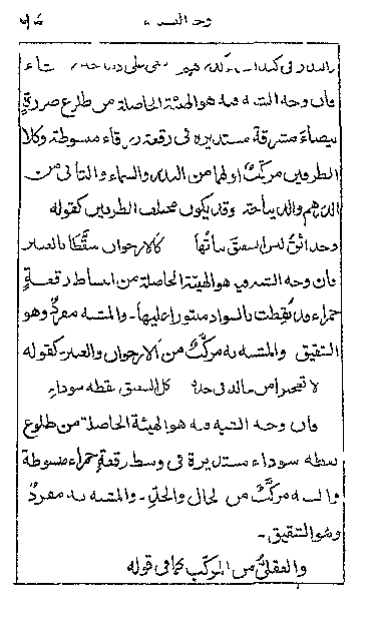 وجه الشبه
فان وجه الشبه فيه هو الهيئة الحاصلة من طلوع صورة
بيضاء مشرقة مستديرة فى رقعة زرقاء مبسوطة وكلا
الطرفين مركب اولهما من البدر والسماء والثانى من
الدرهم والديباجة وقد يكون مختلف الطرفين كقوله
وحدائق لبس الشقيق نباتها كالارجوان منقطا بالعنبر
فان وجه الشبه هو الهيئة الحاصلة من انبساط رقعة
حمراء قد نقطت بالسواد منثورا عليها۔ والمشبه مفرد وهو
الشقيق والمشبه به مركب من الارجوان والعنبر۔ كقوله
لا تعجبوا من خاله فى خده كل الشقيق بنقطة سوداء
فان وجه الشبه فيه هو الهيئة الحاصلة من طلوع
نقطة سوداء مستديرة فى وسط رقعة حمراء مبسوطة
والمشبه مركب من الخال والخد۔ والمشبه به مفرد
وهو الشقيق۔
والعقلى من المركب كما فى قوله